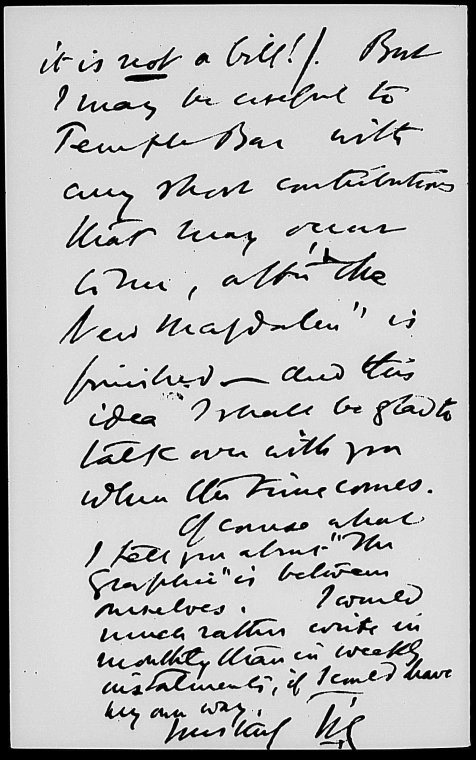 it is not a bill!). But
I may be useful to
Temple Bar with
any short contributions
that may occur
to me, after "The
New Magdalen" is
finished — and this
idea I shall be glad to
talk over with you
when the time comes.
Of course what
I tell you about "The
Graphic" is between
ourselves. I would
much rather write in
monthly than in weekly
instalments, if I could have
my own way.